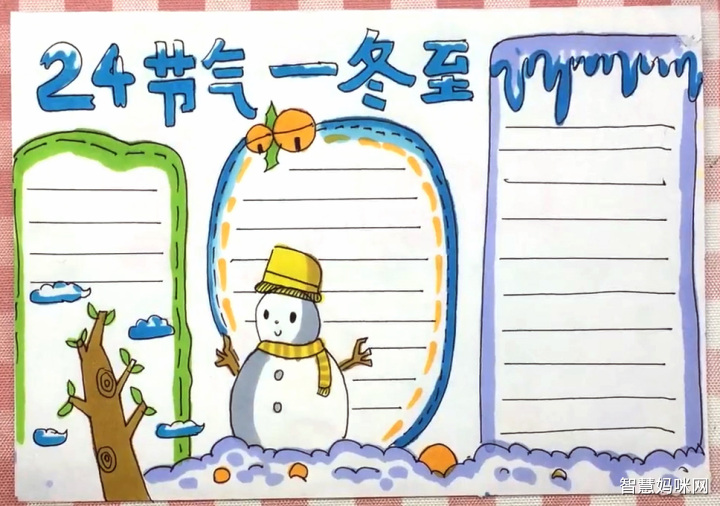 24节气一冬至
智慧妈咪网